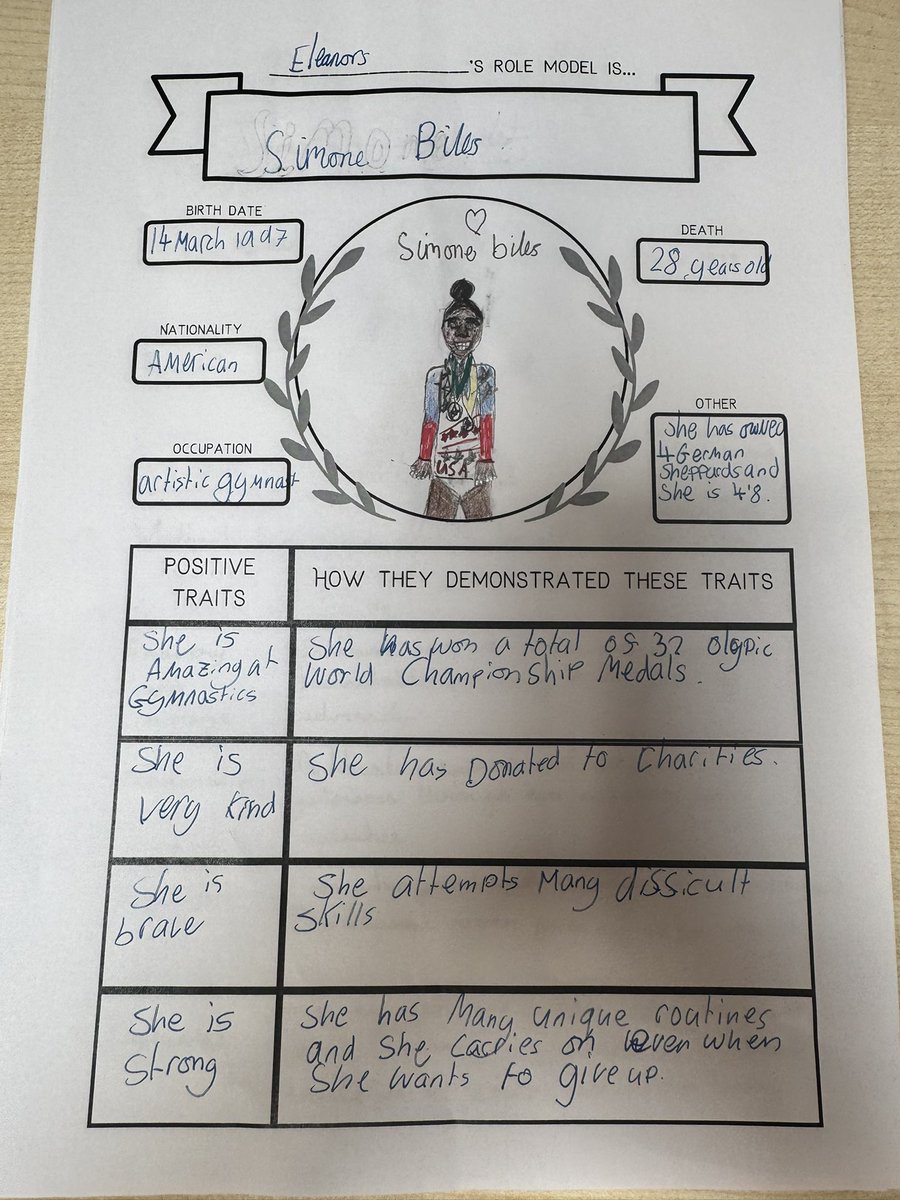 Eleanors 'S ROLE MODEL IS...
Simone Biles
BIRTH DATE
14 March 1997
NATIONALITY
American
OCCUPATION
artistic gymnast
Simone biles
USA
DEATH
28 years old
OTHER
she has owned
4 German
Sheppards and
She is 4'8.
POSITIVE
TRAITS
HOW THEY DEMONSTRATED THESE TRAITS
She is
Amazing at
Gymnastics
She has won a total of 32 Olypic
World Championship Medals.
She is
very kind
She has Donated to Charities.
She is
brave
She attempts Many difficult
skills
She is
Strong
She has Many unique routines
and She carries on even when
She wants to give up.